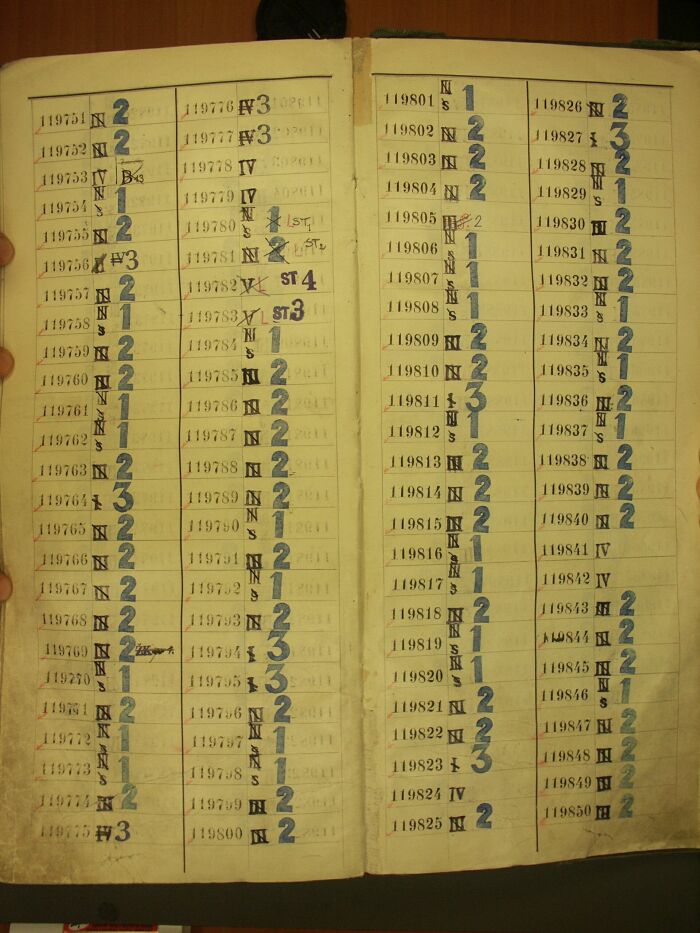 119751 N 2
119752 N 2
119753 IV B
119754 N S 1
119755 N 2
119756 IV 3
119757 N 2
119758 N S 1
119759 N 2
119760 N 2
119761 N S 1
119762 N S 1
119763 N 2
119764 1 3
119765 N 2
119766 N 2
119767 N 2
119768 N 2
119769 N 2
119770 N S 1
119771 N 2
119772 N S 1
119773 N S 1
119774 N 2
119775 IV 3
119776 IV 3
119777 IV 3
119778 IV
119779 IV
119780 N S 1 L ST1
119781 N 2 ST2
119782 V L ST 4
119783 V L ST 3
119784 N S 1
119785 N 2
119786 N 2
119787 N 2
119788 N 2
119789 N 2
119790 N S 1
119791 N 2
119792 N S 1
119793 N 2
119794 1 3
119795 1 3
119796 N 2
119797 N S 1
119798 N S 1
119799 N 2
119800 N 2
119801 N S 1
119802 N 2
119803 N 2
119804 N 2
119805 2
119806 N S 1
119807 N S 1
119808 N S 1
119809 N 2
119810 N 2
119811 1 3
119812 N S 1
119813 N 2
119814 N 2
119815 N 2
119816 N S 1
119817 N S 1
119818 N 2
119819 N S 1
119820 N S 1
119821 N 2
119822 N 2
119823 1 3
119824 IV
119825 N 2
119826 N 2
119827 1 3
119828 N 2
119829 N S 1
119830 N 2
119831 N 2
119832 N 2
119833 N S 1
119834 N 2
119835 N S 1
119836 N 2
119837 N S 1
119838 N 2
119839 N 2
119840 N 2
119841 IV
119842 IV
119843 N 2
119844 N 2
119845 N 2
119846 N S 1
119847 N 2
119848 N 2
119849 N 2
119850 N 2